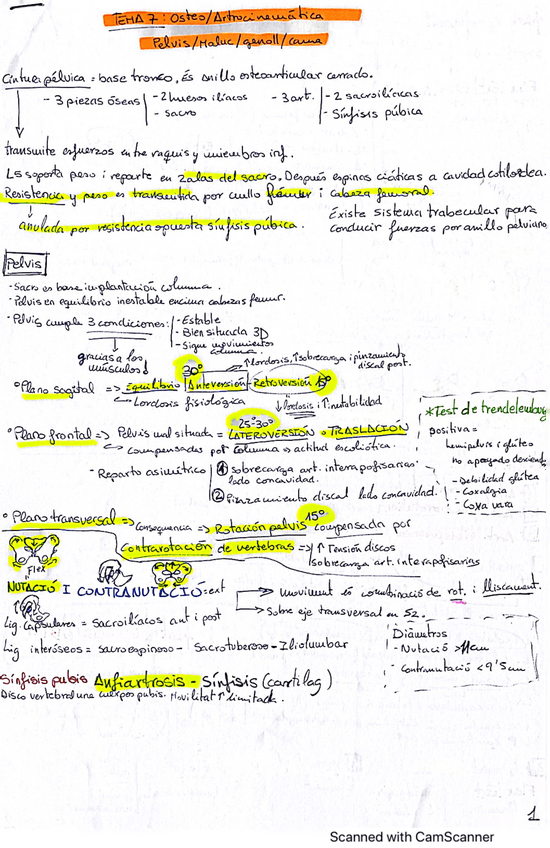 TEMA 7: Osteo/Artrocinemática
Pelvis/Maluc/genoll/cama
Cintura pélvica = base tronco, és anillo osteoarticular cerrado.
- 3 piezas óseas - 2 huesos ilíacos - 3 art. - 2 sacroilíacas
- sacro - Sínfisis púbica
transmite esfuerzos entre raquis y miembros inf.
L5 soporta peso i reparte en 2 alas del sacro. Después espinas ciáticas a cavidad cotiloidea.
Resistencia y peso es transmitida por cuello fémur i cabeza femoral.
anulada por resistencia opuesta sínfisis púbica.
Existe sistema trabecular para
conducir fuerzas por anillo pelviano
Pelvis
- Sacro es base implantación columna.
- Pelvis en equilibrio inestable encima cabezas femur.
- Pelvis cumple 3 condiciones: - Estable
- Bien situada 3D
- Sigue movimientos columna.
gracias a los músculos!
30° ↑lordosis, ↑sobrecarga i pinzamiento
discal post.
° Plano sagital => Equilibrio Anteversión - Retroversión 15°
Lordosis fisiológica ↓lordosis, ↑inestabilidad
25-30°
° Plano frontal => Pelvis mal situada = LATEROVERSIÓN o TRASLACIÓN
compensadas por columna => actitud escoliótica.
- Reparto asimétrico 1 sobrecarga art. interapofisarias
lado concavidad.
2 Pinzamiento discal lado concavidad.
*Test de trendelenburg
positiva =
hemipelvis i glúteo
no apoyado desciende
- Debilidad glútea
- Coxalgia
- Coxa vara
15°
° Plano transversal => consecuencia => Rotación pelvis compensada por
Contrarotación de vertebras => ↑ Tensión discos
sobrecarga art. interapofisarias
Flex
NUTACIÓ I CONTRANUTACIÓ: ext
moviment és combinació de rot. i lliscament.
Sobre eje transversal en S2.
Lig. Capsulares = sacroilíacos ant i post
Lig interóseos = sacroespinoso - Sacrotuberoso - Iliolumbar
Diámetros
- Nutació >11cm
- Contranutació <9'5cm
Sínfisis pubis Anfiartrosis - Sínfisis (cartílag)
Disco vertebral une cuerpos pubis. Movilitat ↑ limitada.
1
Scanned with CamScanner